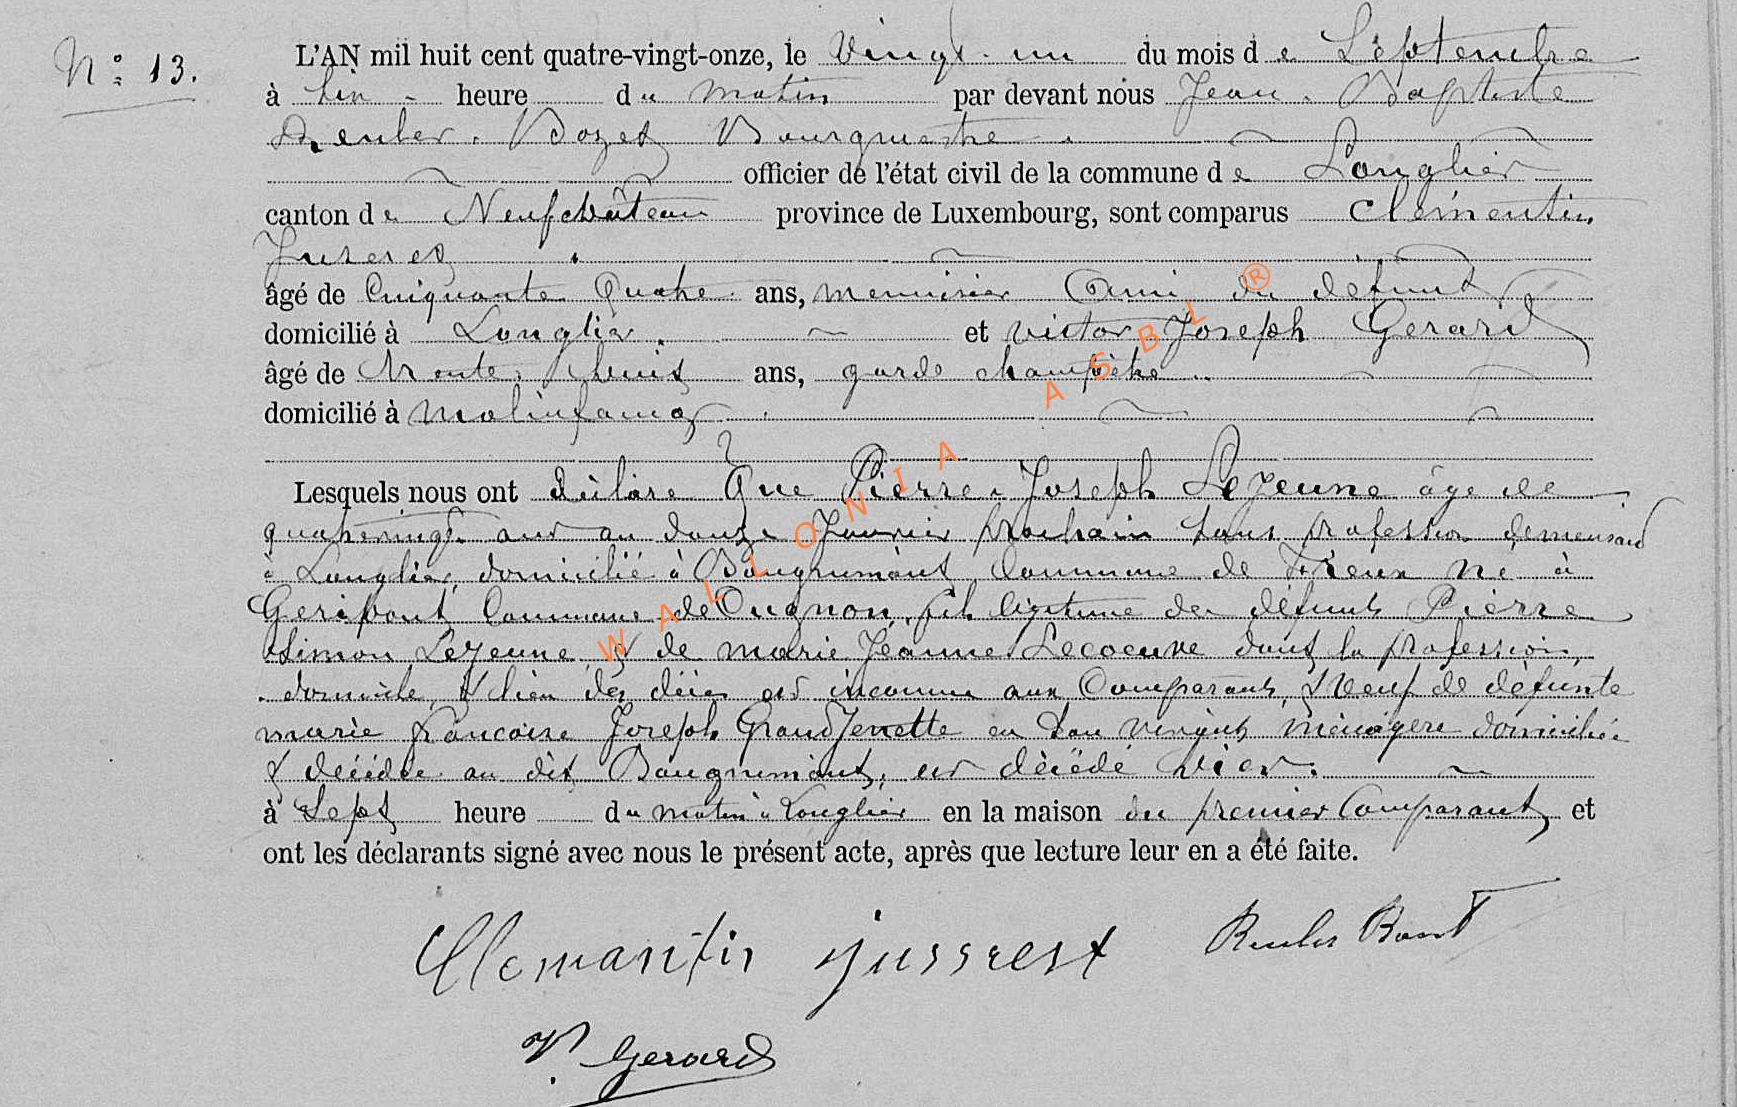 N° 13.
L'AN mil huit cent quatre-vingt-onze, le Vingt-un du mois de Septembre
à Six heure du matin par devant nous Jean-Baptiste
Reuler-Bozet Bourgmestre
officier de l'état civil de la commune de Longlier
canton de Neufchâteau province de Luxembourg, sont comparus Clémentin
Juseret
âgé de Cinquante Quatre ans, menuisier Ami du défunt
domicilié à Longlier. et victor Joseph Gerard
âgé de trente ans, garde champêtre
domicilié à Molinfaing
Lesquels nous ont déclaré Que Pierre-Joseph Lejeune âgé de
quatrevingt ans au douze Janvier prochain sans profession demeurant
à Longlier, domicilié à Bougnimont Commune de Freux né à
Geripont Commune de Cugnon, fils légitime des défunts Pierre
Simon Lejeune & de marie Jeanne Lecoeuve dont la profession,
domicile, & lieu de décès est inconnu aux Comparants, & Veuf de défunte
marie françoise Joseph GrandJenette en son vivant ménagère domiciliée
& décédée au dit Bougnimont, est décédé hier.
à Sept heure du matin à Longlier en la maison du premier Comparant, et
ont les déclarants signé avec nous le présent acte, après que lecture leur en a été faite.
Clemantin jusserest
V. Gerard
WALLONIA ASBL ®